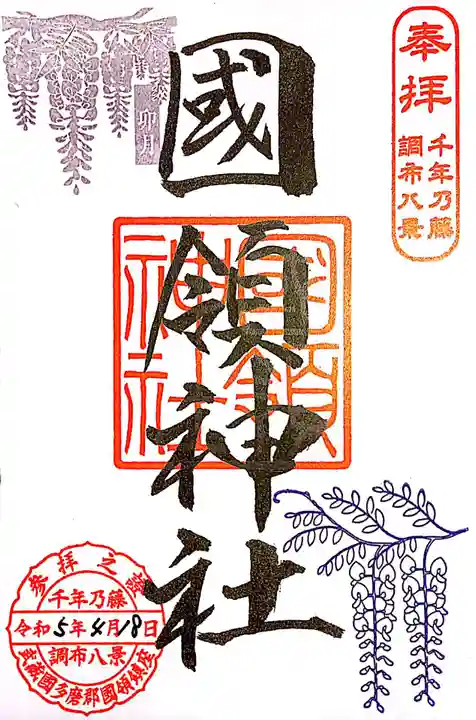 奉拝
千年乃藤
調布八景
國領神社
國領
神社
卯月
参拝之證
千年乃藤
令和5年4月18日
調布八景
武蔵國多磨郡國領鎮座